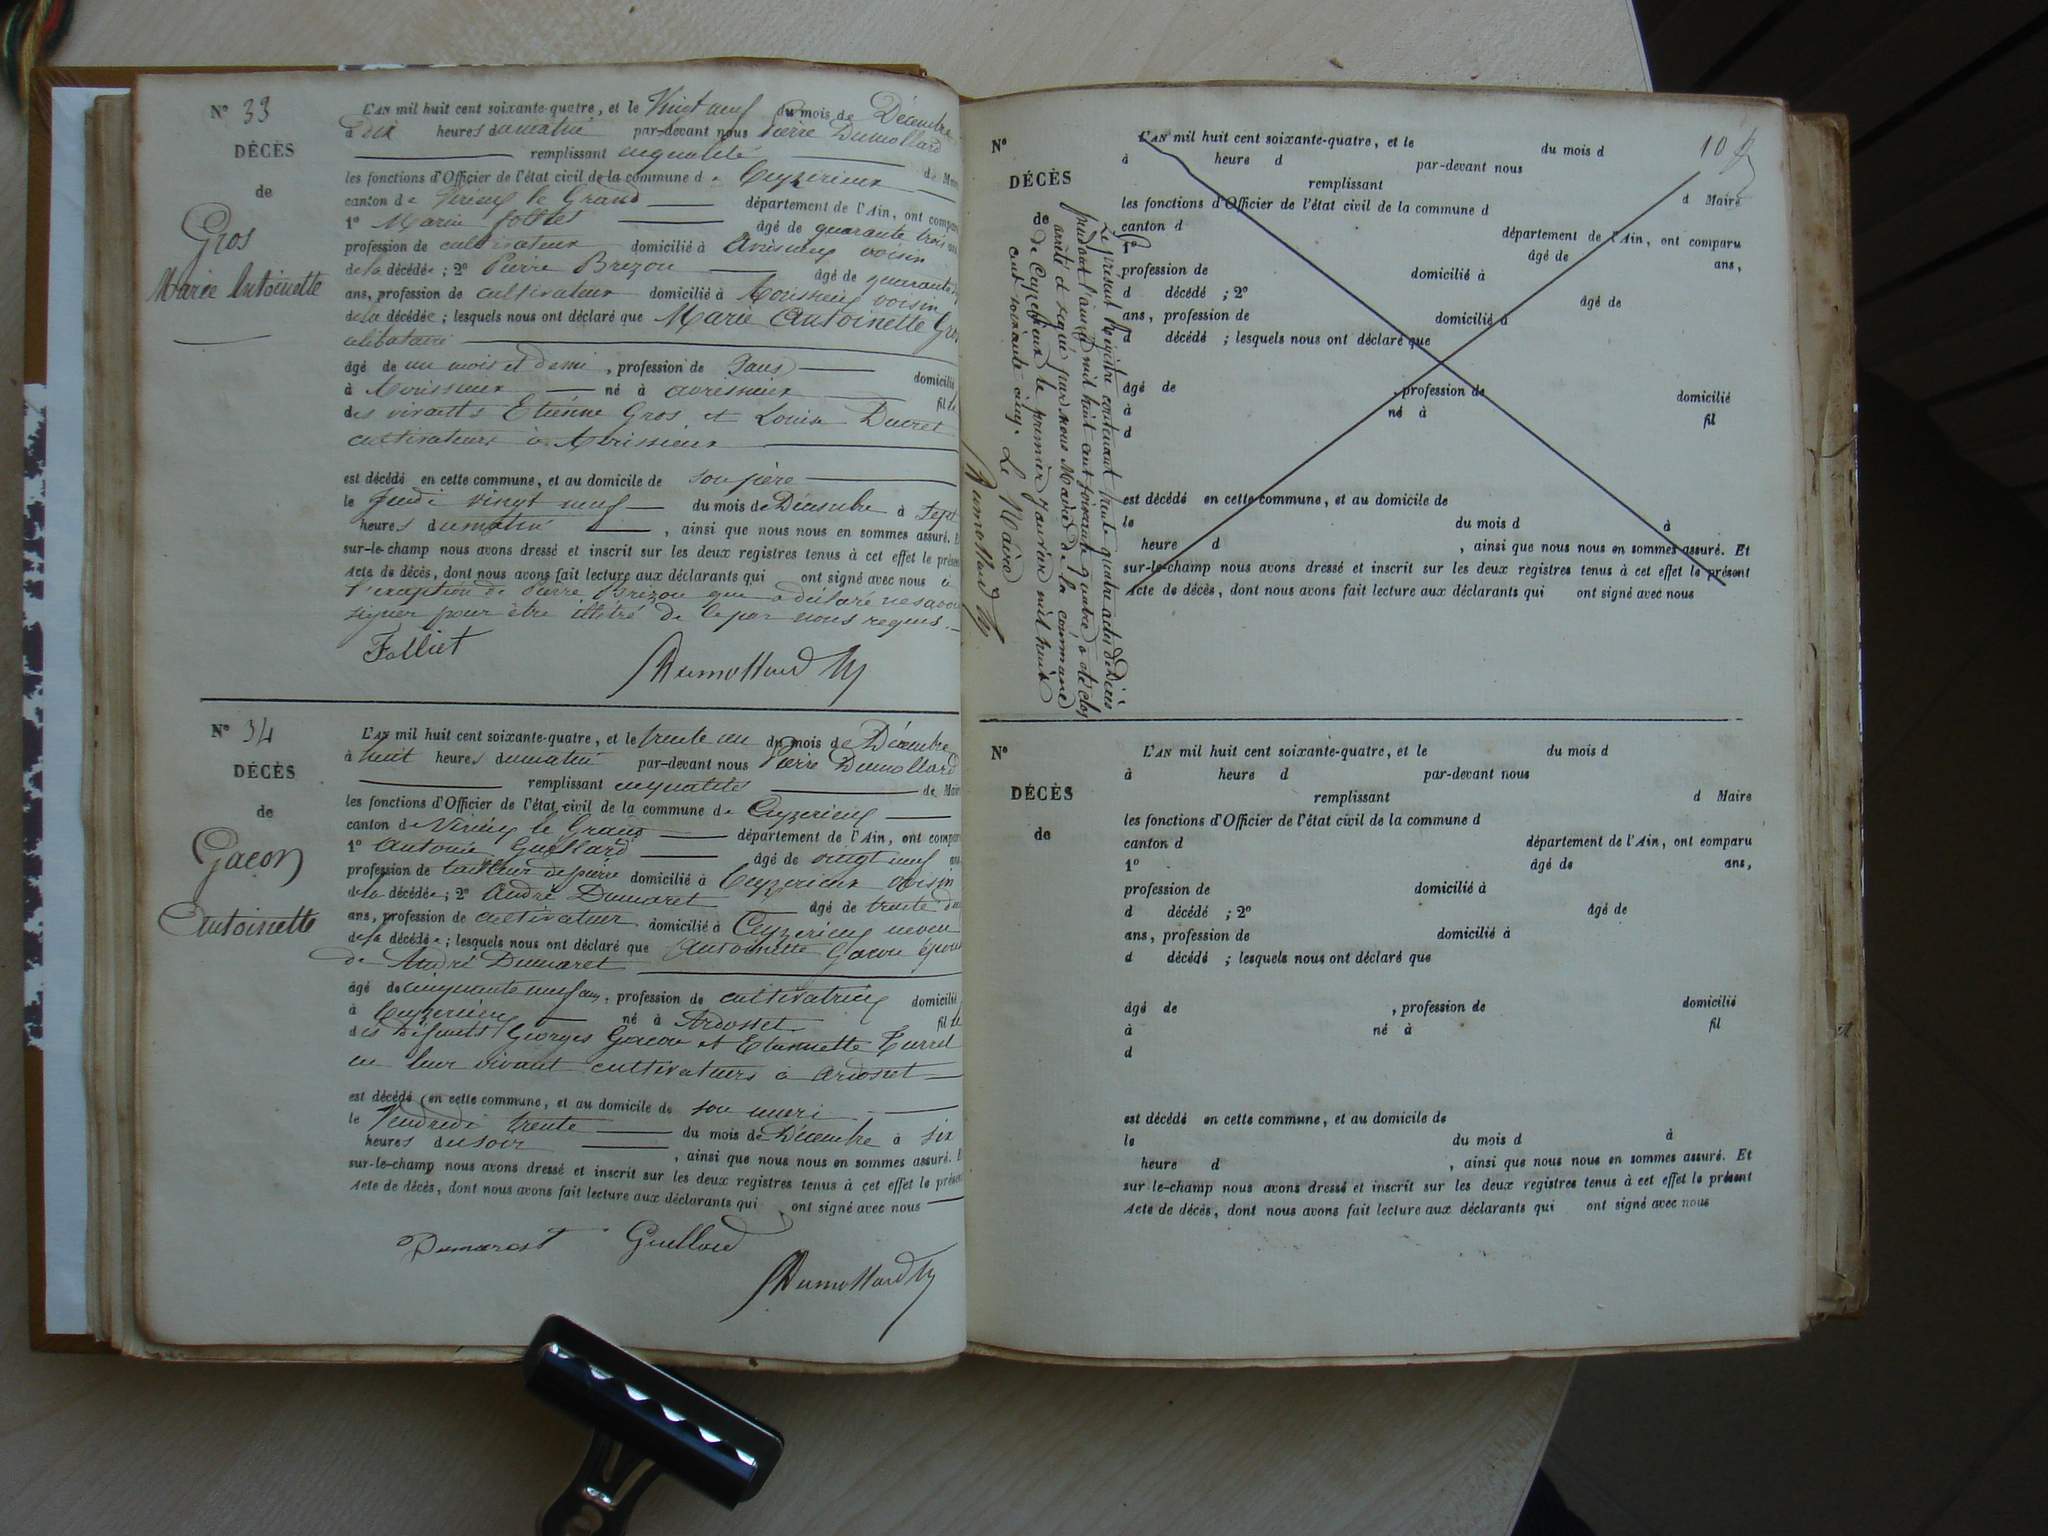 N° 33
DÉCÈS
de
Gros
Marie Antoinette
L'AN mil huit cent soixante-quatre, et le Vingt neuf du mois de Décembre
à dix heures du matin par-devant nous Pierre Dumollard
remplissant en qualité de Maire
les fonctions d'Officier de l'état civil de la commune de Ceyzerieux
canton de Virieux le Grand département de l'Ain, ont comparu
1° Marin âgé de quarante trois ans
profession de cultivateur domicilié à voisin
de la décédée ; 2° Pierre Brezon âgé de quarante
ans, profession de cultivateur domicilié à voisin
de la décédée ; lesquels nous ont déclaré que Marie Antoinette Gros
célibataire
âgé de un mois et demi, profession de Sans domicilié
à né à fil de
des vivants Etienne Gros et Louise Ducret
cultivateurs à
est décédé en cette commune, et au domicile de son père
le Jeudi vingt neuf du mois de Décembre à Sept
heures du matin, ainsi que nous nous en sommes assuré. E
sur-le-champ nous avons dressé et inscrit sur les deux registres tenus à cet effet le présen
Acte de décès, dont nous avons fait lecture aux déclarants qui ont signé avec nous à
l'exception de Pierre Brezon que a déclaré ne savoir
signer pour être illétré de ce par nous requis.
Folliet
Dumollard
N° 34
DÉCÈS
de
Gaçon
Antoinette
L'AN mil huit cent soixante-quatre, et le trente un du mois de Décembre
à huit heures du matin par-devant nous Pierre Dumollard
remplissant en qualité de Maire
les fonctions d'Officier de l'état civil de la commune de Ceyzerieux
canton de Virieux le Grand département de l'Ain, ont comparu
1° Antoine Guilland âgé de vingt neuf ans
profession de tailleur de pierre domicilié à Ceyzerieux voisin
de la décédée ; 2° André Dumaret âgé de trente
ans, profession de cultivateur domicilié à Ceyzerieux neveu
de la décédée ; lesquels nous ont déclaré que Antoinette Gacon épouse
de André Dumaret
âgé de cinquante neuf ans, profession de cultivatrice domicilié
à Ceyzerieux né à Ardosset fil de
des défunts Georges Gacon et Etiennette
en leur vivant cultivateurs à Ardosset
est décédé en cette commune, et au domicile de son mari
le Vendredi trente du mois de Décembre à six
heures du soir, ainsi que nous nous en sommes assuré. E
sur-le-champ nous avons dressé et inscrit sur les deux registres tenus à cet effet le présen
Acte de décès, dont nous avons fait lecture aux déclarants qui ont signé avec nous
Dumarest Guilland
Dumollard
10
N°
DÉCÈS
de
L'AN mil huit cent soixante-quatre, et le du mois d
à heure d par-devant nous
remplissant d Maire
les fonctions d'Officier de l'état civil de la commune d
canton d département de l'Ain, ont comparu
1° âgé de ans,
profession de domicilié à
d décédé ; 2° âgé de
ans, profession de domicilié à
d décédé ; lesquels nous ont déclaré que
âgé de , profession de domicilié
à né à fil
d
est décédé en cette commune, et au domicile de
le du mois d à
heure d , ainsi que nous nous en sommes assuré. Et
sur-le-champ nous avons dressé et inscrit sur les deux registres tenus à cet effet le présent
Acte de décès, dont nous avons fait lecture aux déclarants qui ont signé avec nous
Le présent Registre contenant trente quatre actes de Décès
pendant l'année mil huit cent soixante quatre a été clos
arrêté et signé par nous Maire de la commune
de Ceyzerieux le premier Janvier mil huit
cent soixante cinq. Le Maire
Dumollard
N°
DÉCÈS
de
L'AN mil huit cent soixante-quatre, et le du mois d
à heure d par-devant nous
remplissant d Maire
les fonctions d'Officier de l'état civil de la commune d
canton d département de l'Ain, ont comparu
1° âgé de ans,
profession de domicilié à
d décédé ; 2° âgé de
ans, profession de domicilié à
d décédé ; lesquels nous ont déclaré que
âgé de , profession de domicilié
à né à fil
d
est décédé en cette commune, et au domicile de
le du mois d à
heure d , ainsi que nous nous en sommes assuré. Et
sur-le-champ nous avons dressé et inscrit sur les deux registres tenus à cet effet le présent
Acte de décès, dont nous avons fait lecture aux déclarants qui ont signé avec nous